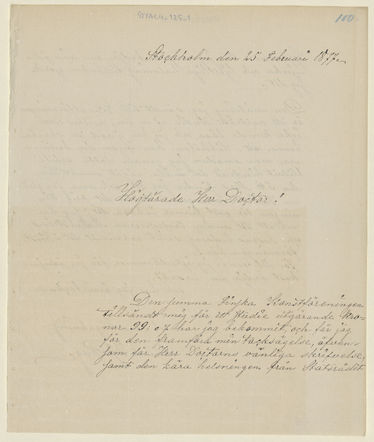 100.
Stockholm den 25 Februari 1877.
Högtärade Herr Doctor!
Den summa Finska Konstföreningen
tillsändt mig för ett Studie utgörande Kro-
nor 99: 07 har jag bekommit, och får jag
för den framföra min tacksägelse, äfven-
som för Herr Doctorns vänliga skrifvelse,
samt den kära helsningen från Statsrådet